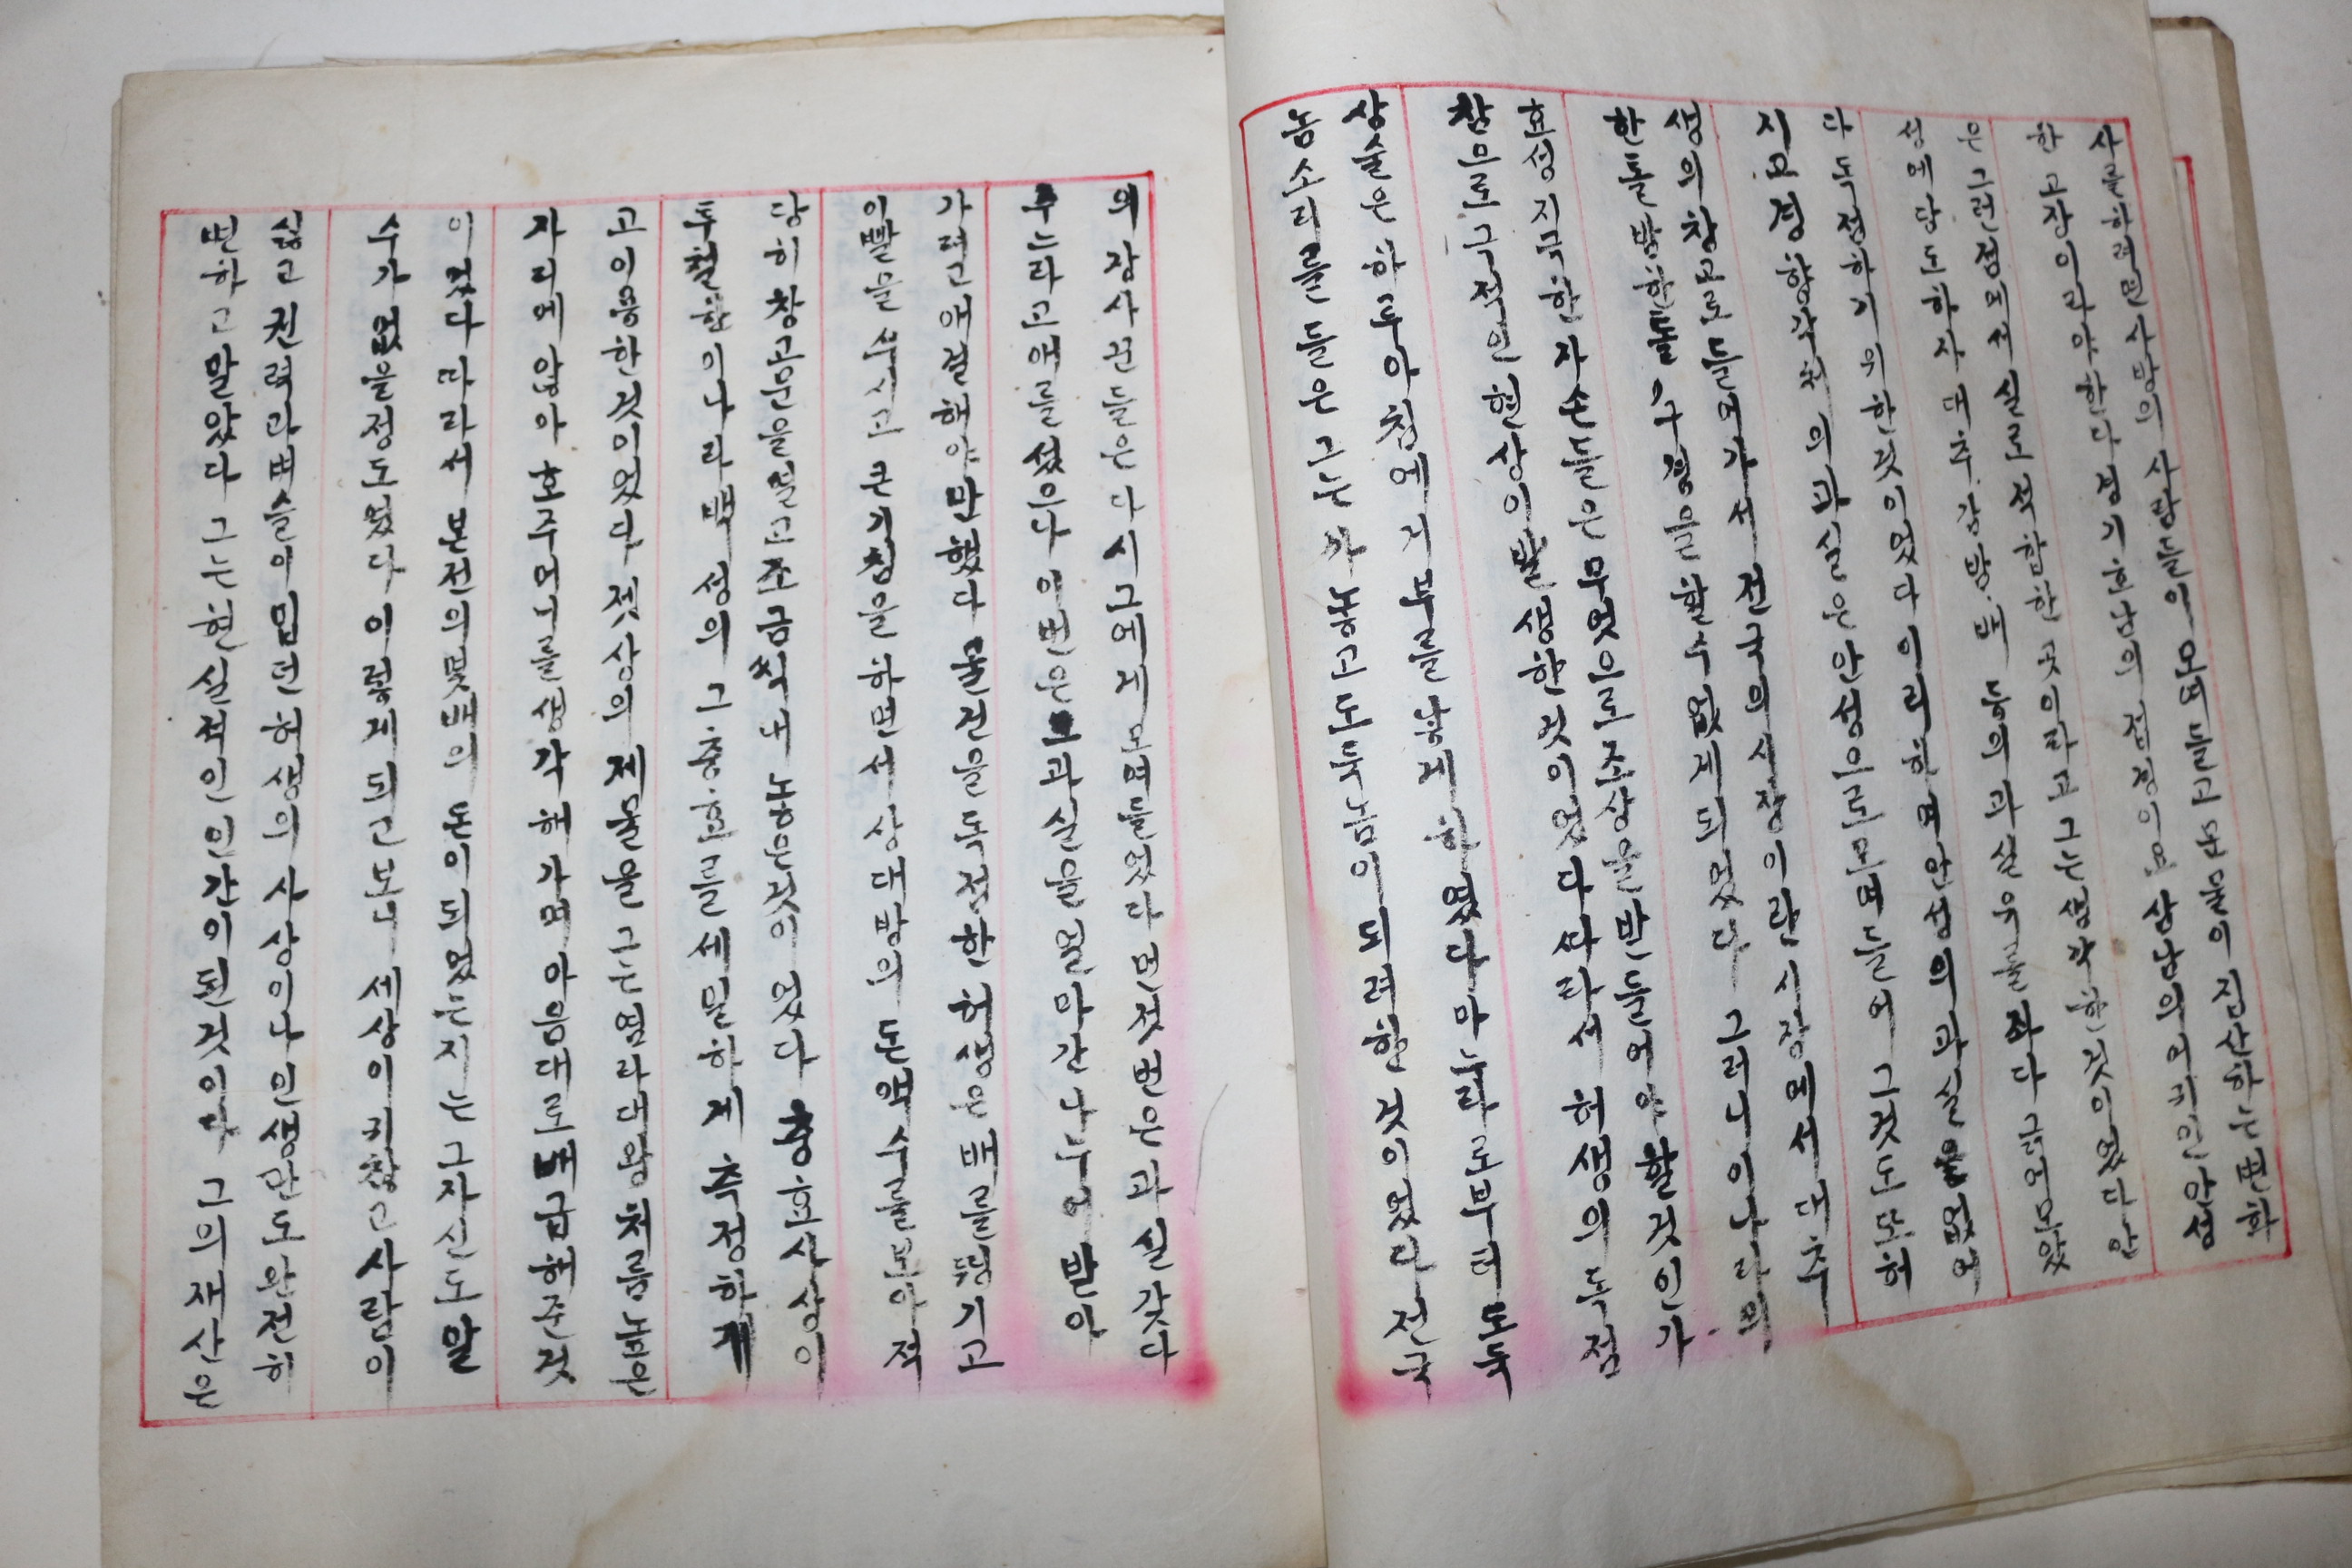 사를하려면사방의사람들이모여들고또산물의집산하는편한
한고장이라야한다경기호남의접경이요삼남의어귀인안성
은그런점에서실로적합한곳이라고그는생각한것이었다안
성에당도하자대추·감·밤·배등의과실우를좌다그러모았
다독점하기위한것이었다이리하여안성의과실을없어
지묘경향각처의과실은안성으로모여들어그것도또허
생의창고로들어가서전국의시장이란시장에서대추
한톨밤한톨구경을할수없게되었다그러니이나라의
효성지극한자손들은무엇으로조상을받들어야할것인가
참으로그것인현상이발생한것이었다따라서허생의독점
상술은하루아침에거부를낳게하였다마누라로부터도둑
놈소리를들은그는농고도둑놈이되려한것이었다전국
의장사꾼들은다시그에게모여들었다먼젓번은과실갖다
주느라고애를썼으나이번은과실을얼마간나누어받아
가려고애걸해야만했다물건을독점한허생은배를튕기고
이빨을쑤시고큰기침을하면서상대방의돈액수를보아적
당히창고문을열고조금씩내놓은것이었다숭조사상이
투철한이나라백성의그·숭·조를세밀하게측정하게
고이용한것이었다젯상의제물을그는염라대왕처름높은
자리에앉아호주머니를생각해가며마음대로배급해준것
이었다따라서본전의몇배의돈이되었는지는그자신도알
수가없을정도였다이렇게되고보니세상이귀찮고사람이
싫고권력과벼슬이밉던허생의사상이나인생관도완전히
변하고말았다그는현실적인인간이된것이다그의재산은